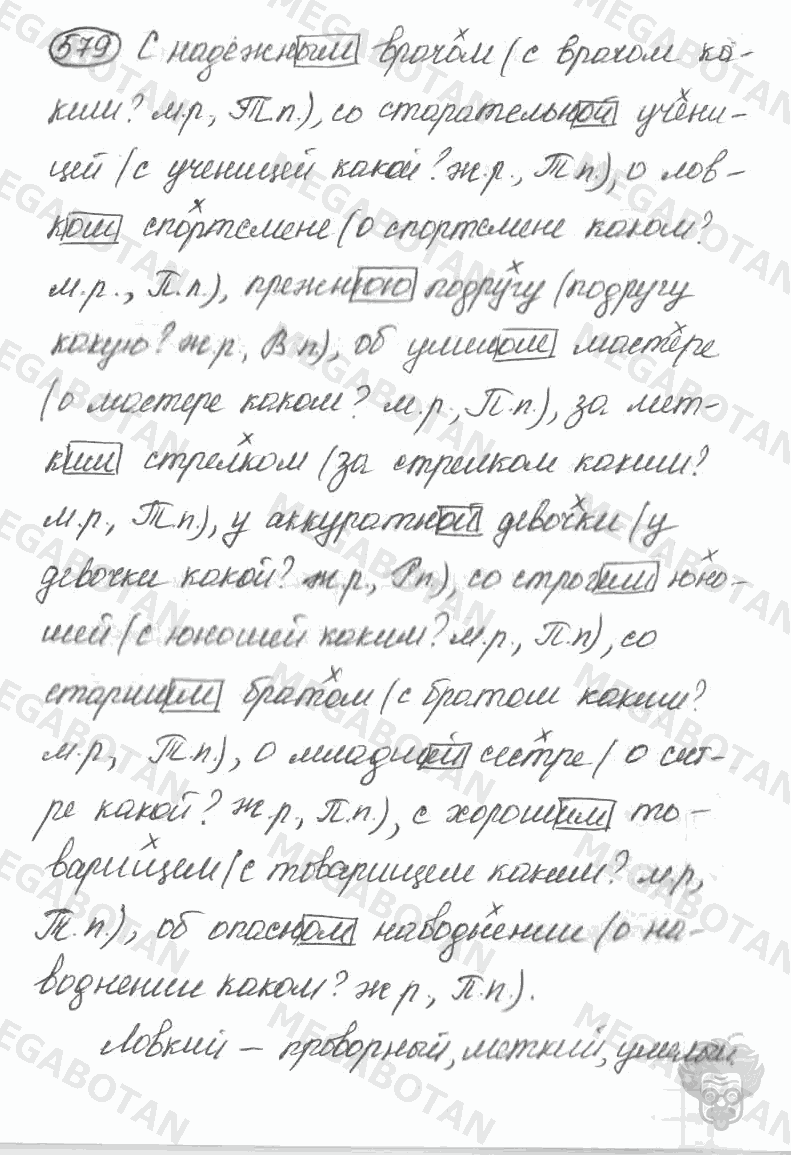 579 С надёжным врачом (с врачом ка-
ким? м.р., Т.п.), со старательной учени-
цей (с ученицей какой? ж.р., Т.п.), о лов-
ком спортсмене (о спортсмене каком?
м.р., П.п.), прежнюю подругу (подругу
какую? ж.р., В.п.), об умном мастере
(о мастере каком? м.р., П.п.), за мет-
ким стрелком (за стрелком каким?
м.р., Т.п.), у аккуратной девочки (у
девочки какой? ж.р., Р.п.), со строгим юно-
шей (с юношей каким? м.р., П.п), со
старшим братом (с братом каким?
м.р., Т.п.), о младшей сестре (о сест-
ре какой? ж.р., П.п.), с хорошим то-
варищем (с товарищем каким? м.р,
Т.п.), об опасном наводнении (о на-
воднении каком? ж р., П.п.).
Ловкий – проворный, меткий, умелый.
MEGABOTAN